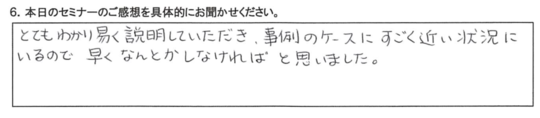 6. 本日のセミナーのご感想を具体的にお聞かせください。
とてもわかり易く説明していただき、事例のケースにすごく近い状況に
いるので 早くなんとかしなければ と思いました。